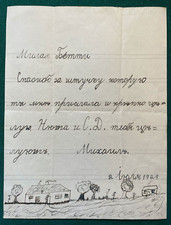 Милая Бетти
Спасибо за штучку которую
ты мнѣ прислала и крѣпко цѣ-
лую Нюта и С. Д. тебя цѣ-
луютъ. Михаилъ.
1929